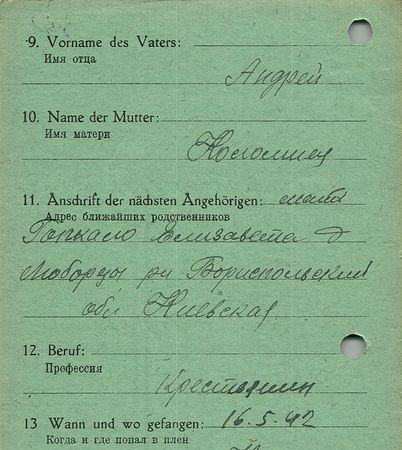 9. Vorname des Vaters:
Имя отца
Андрей
10. Name der Mutter:
Имя матери
Коломиец
11. Anschrift der nächsten Angehörigen: мать
Адрес ближайших родственников
Елизавета д
рн Бориспольский
обл Киевская
12. Beruf:
Профессия
Крестьянин
13 Wann und wo gefangen: 16.5.42
Когда и где попал в плен